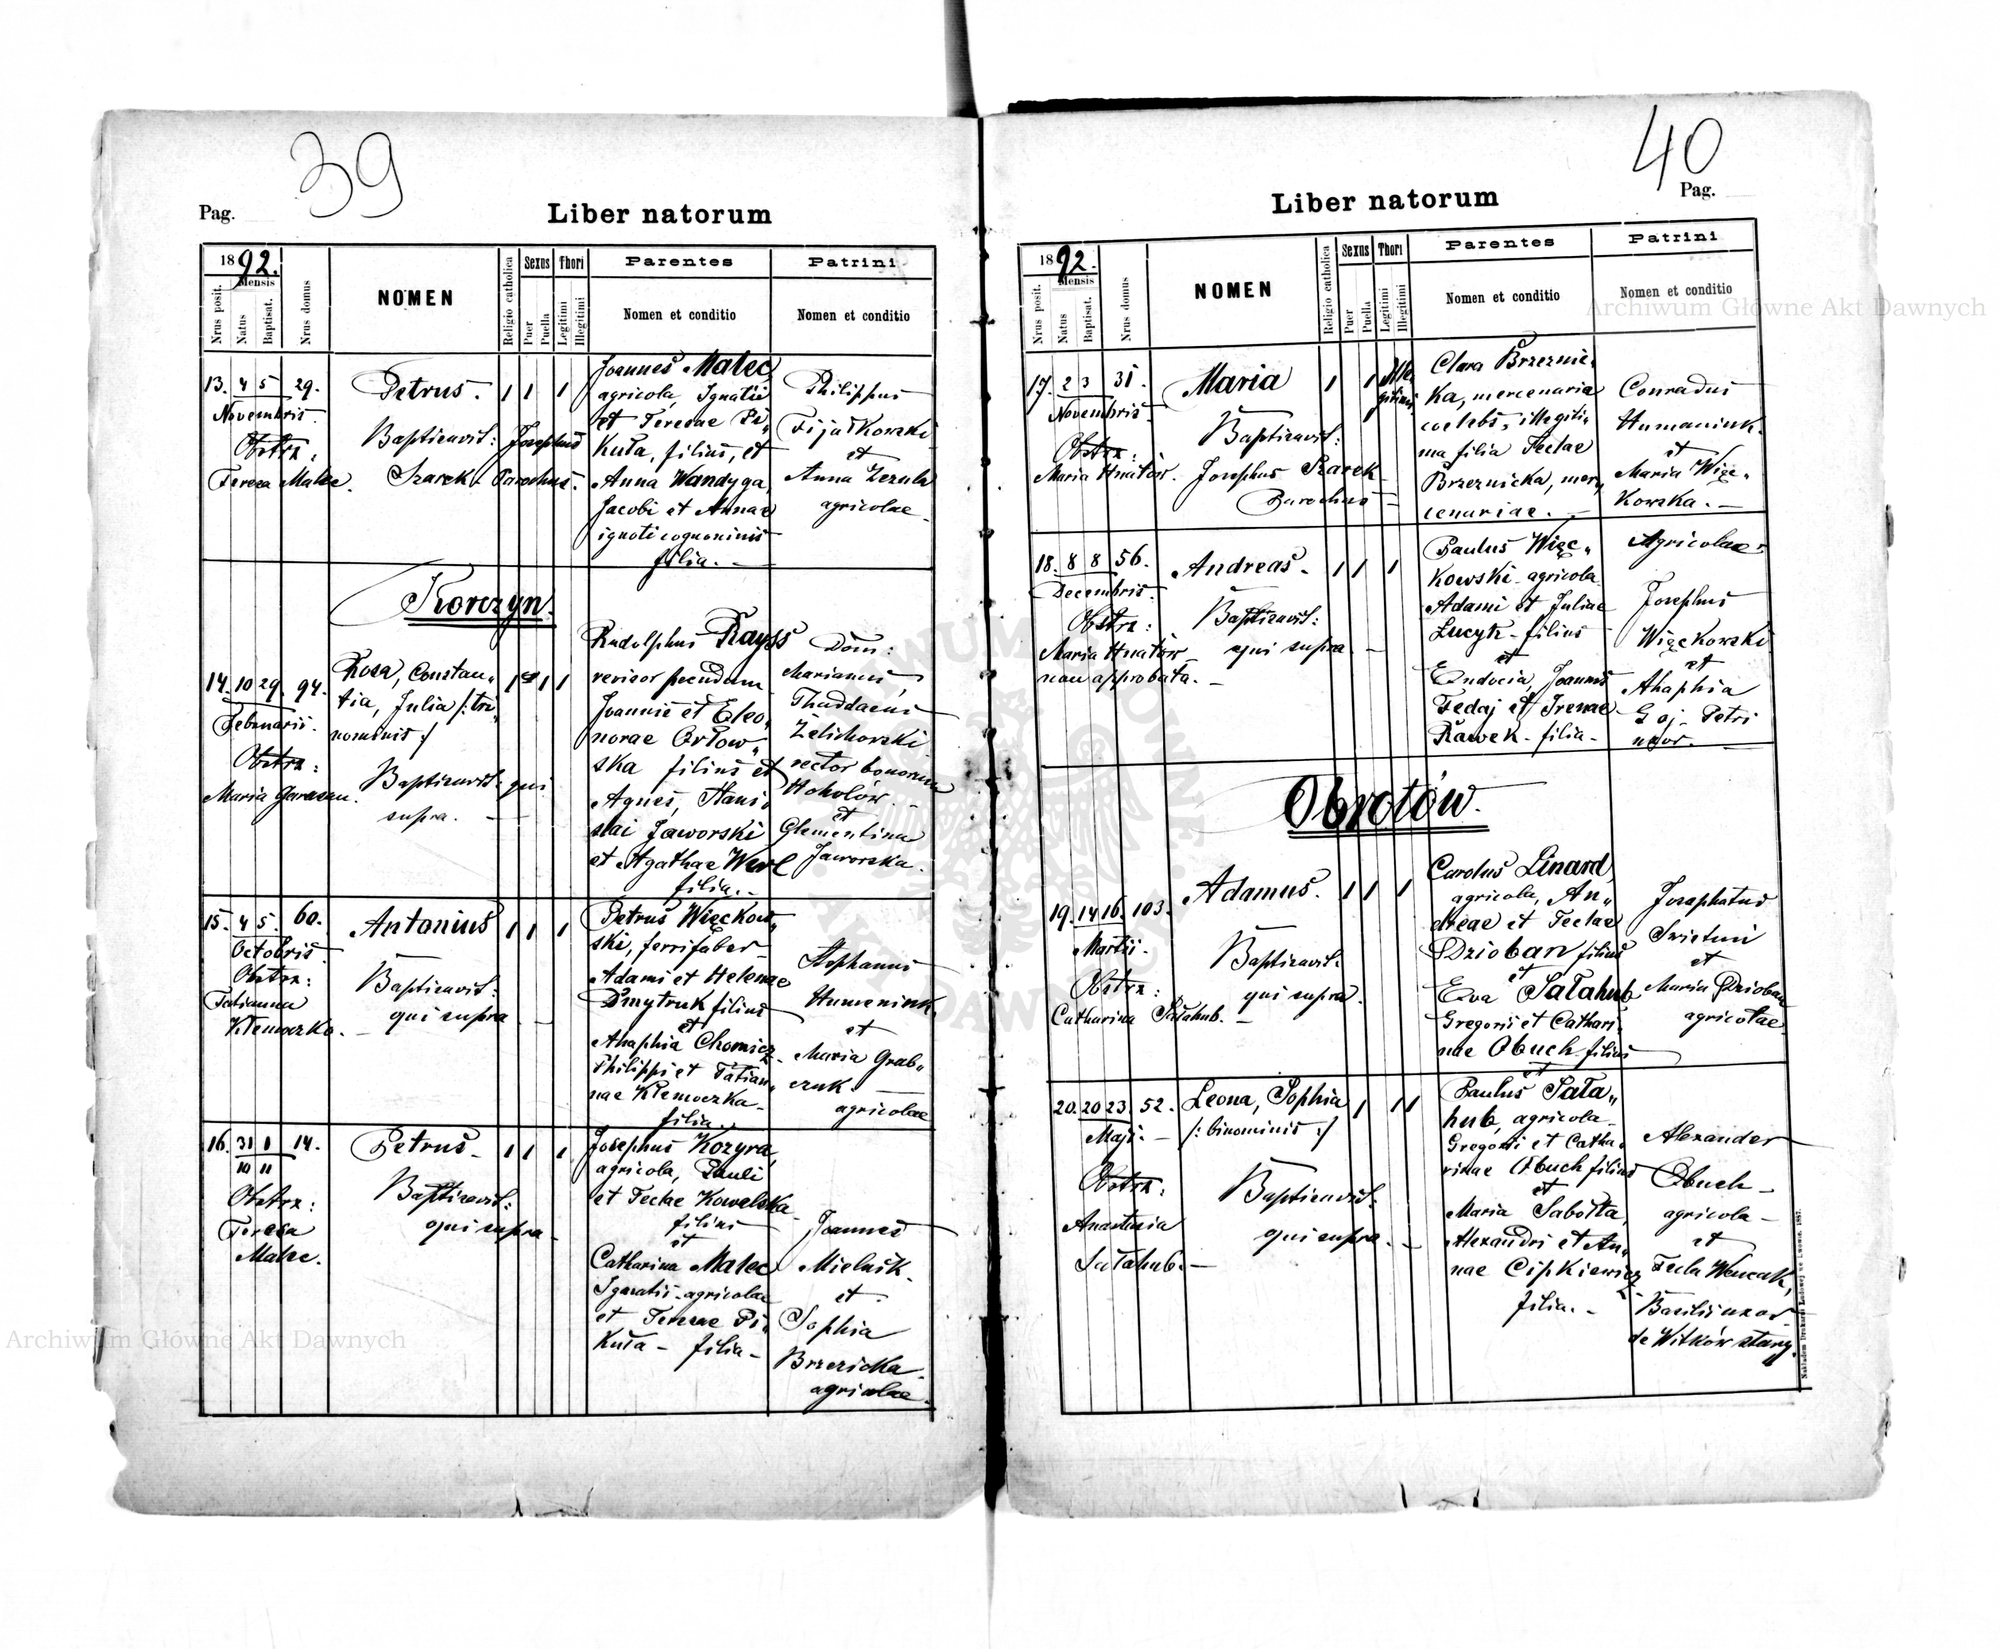 39
Pag.
Liber natorum
1892.
Mensis
Nrus posit.
Natus
Baptisat.
Nrus domus
NOMEN
Religio catholica
Sexus
Puer
Puella
Thori
Legitimi
Illegitimi
Parentes
Nomen et conditio
Patrini
Nomen et conditio
13. 4 5 29.
Novembris.
Obstrx:
Teresa Malec.
Petrus. 1 1 1
Baptisavit: Josephus
Szarek Parochus.
Joannes Malec
agricola, Ignatii
et Teresae Pi„
kuła, filius, et
Anna Wandyga,
Jacobi et Annae
ignoti cognominis
filia. –
Philippus
Fijałkowski
et
Anna Zezula
agricolae.
Korczyn.
14. 10 29. 94.
Februarii.
Obstrx:
Maria
Rosa, Constan„
tia, Julia /: tri„
nominis :/
Baptisavit: qui
supra. –
Rudolphus Rayss
revisor pecudum
Joannis et Eleo„
norae Orłow„
ska filius et
Agnes, Stani„
slai Jaworski
et Agathae Werl
filia. –
Dom:
Marianus,
Thaddaeus
Żelichowski
rector bonorum
Hohołów. –
et
Clementina
Jaworska.
15. 4 5. 60.
Octobris.
Obstrx:
Tatianna
Klemoczko. –
Antonius 1 1 1
Baptisavit:
qui supra
Petrus Więckow„
ski, ferrifaber
Adami et Helenae
Dmytruk filius
et
Ahaphia Chomicz
Philippi et Tatian„
nae Klemoczka
filia.
Stephanus
Humeniuk,
et
Maria Grab„
czuk. –
agricolae
16. 31 1 14.
10 11
Obstrx:
Teresa
Malec.
Petrus – 1 1 1
Baptisavit:
qui supra –
Josephus Kozyra,
agricola, Pauli
et Teclae Kowalska
filius
et
Catharina Malec
Ignatii – agricolae
et Teresae Pi„
kuła – filia –
Joannes
Mielnik.
et
Sophia
Brzezicka
agricolae.
40
Pag.
Liber natorum
1892.
Mensis
Nrus posit.
Natus
Baptisat.
Nrus domus
NOMEN
Religio catholica
Sexus
Puer
Puella
Thori
Legitimi
Illegitimi
Parentes
Nomen et conditio
Patrini
Nomen et conditio
17. 2 3 31.
Novembris
Obstrx:
Maria Hnatów.
Maria 1 1 Ille„
gitimi
Baptisavit:
Josephus Szarek
Parochus –
Clara Brzeznic„
ka, mercenaria
coelebs, illegiti„
ma filia Teclae
Brzeznicka, mer„
cenariae. –
Conradus
Humaniuk.
et
Maria Więc„
kowska. –
Agricolae.
18. 8 8 56.
Decembris.
Obstrx:
Maria Hnatów
non approbata. –
Andreas. 1 1 1
Baptisavit:
qui supra –
Paulus Więc„
kowski – agricola
Adami et Juliae
Lucyk – filius
et
Eudocia, Joannis
Fedaj et Irenae
Rawek – filia –
Josephus
Więckowski
et
Ahaphia
Goj – Petri
uxor. –
Obrotów.
19. 14 16. 103.
Martii.
Obstrx:
Catharina Sałahub. –
Adamus. 1 1 1
Baptisavit:
qui supra.
Carolus Linard,
agricola, An„
dreae et Teclae
Dzioban filius
et
Eva Sałahub
Gregorii et Cathari„
nae Obuch filius
Josaphatus
et
Maria Dzioban
agricolae
20. 20 23. 52.
Maji. –
Obstrx:
Anastasia
Sałahub. –
Leona, Sophia 1 1 1
/: binominis :/
Baptisavit:
qui supra. –
et
Paulus Sała„
hub, agricola
Gregorii et Catha„
rinae Obuch filius
et
Maria Sabotta,
Alexandri et An„
nae Cipkiewicz
filia. –
Alexander
Obuch –
agricola –
et
Tecla Wencak,
Basilii uxor
de Witków stary.
Nakładem Drukarni Ludowej we Lwowie. 1887.
Archiwum Główne Akt Dawnych
Archiwum Główne Akt Dawnych